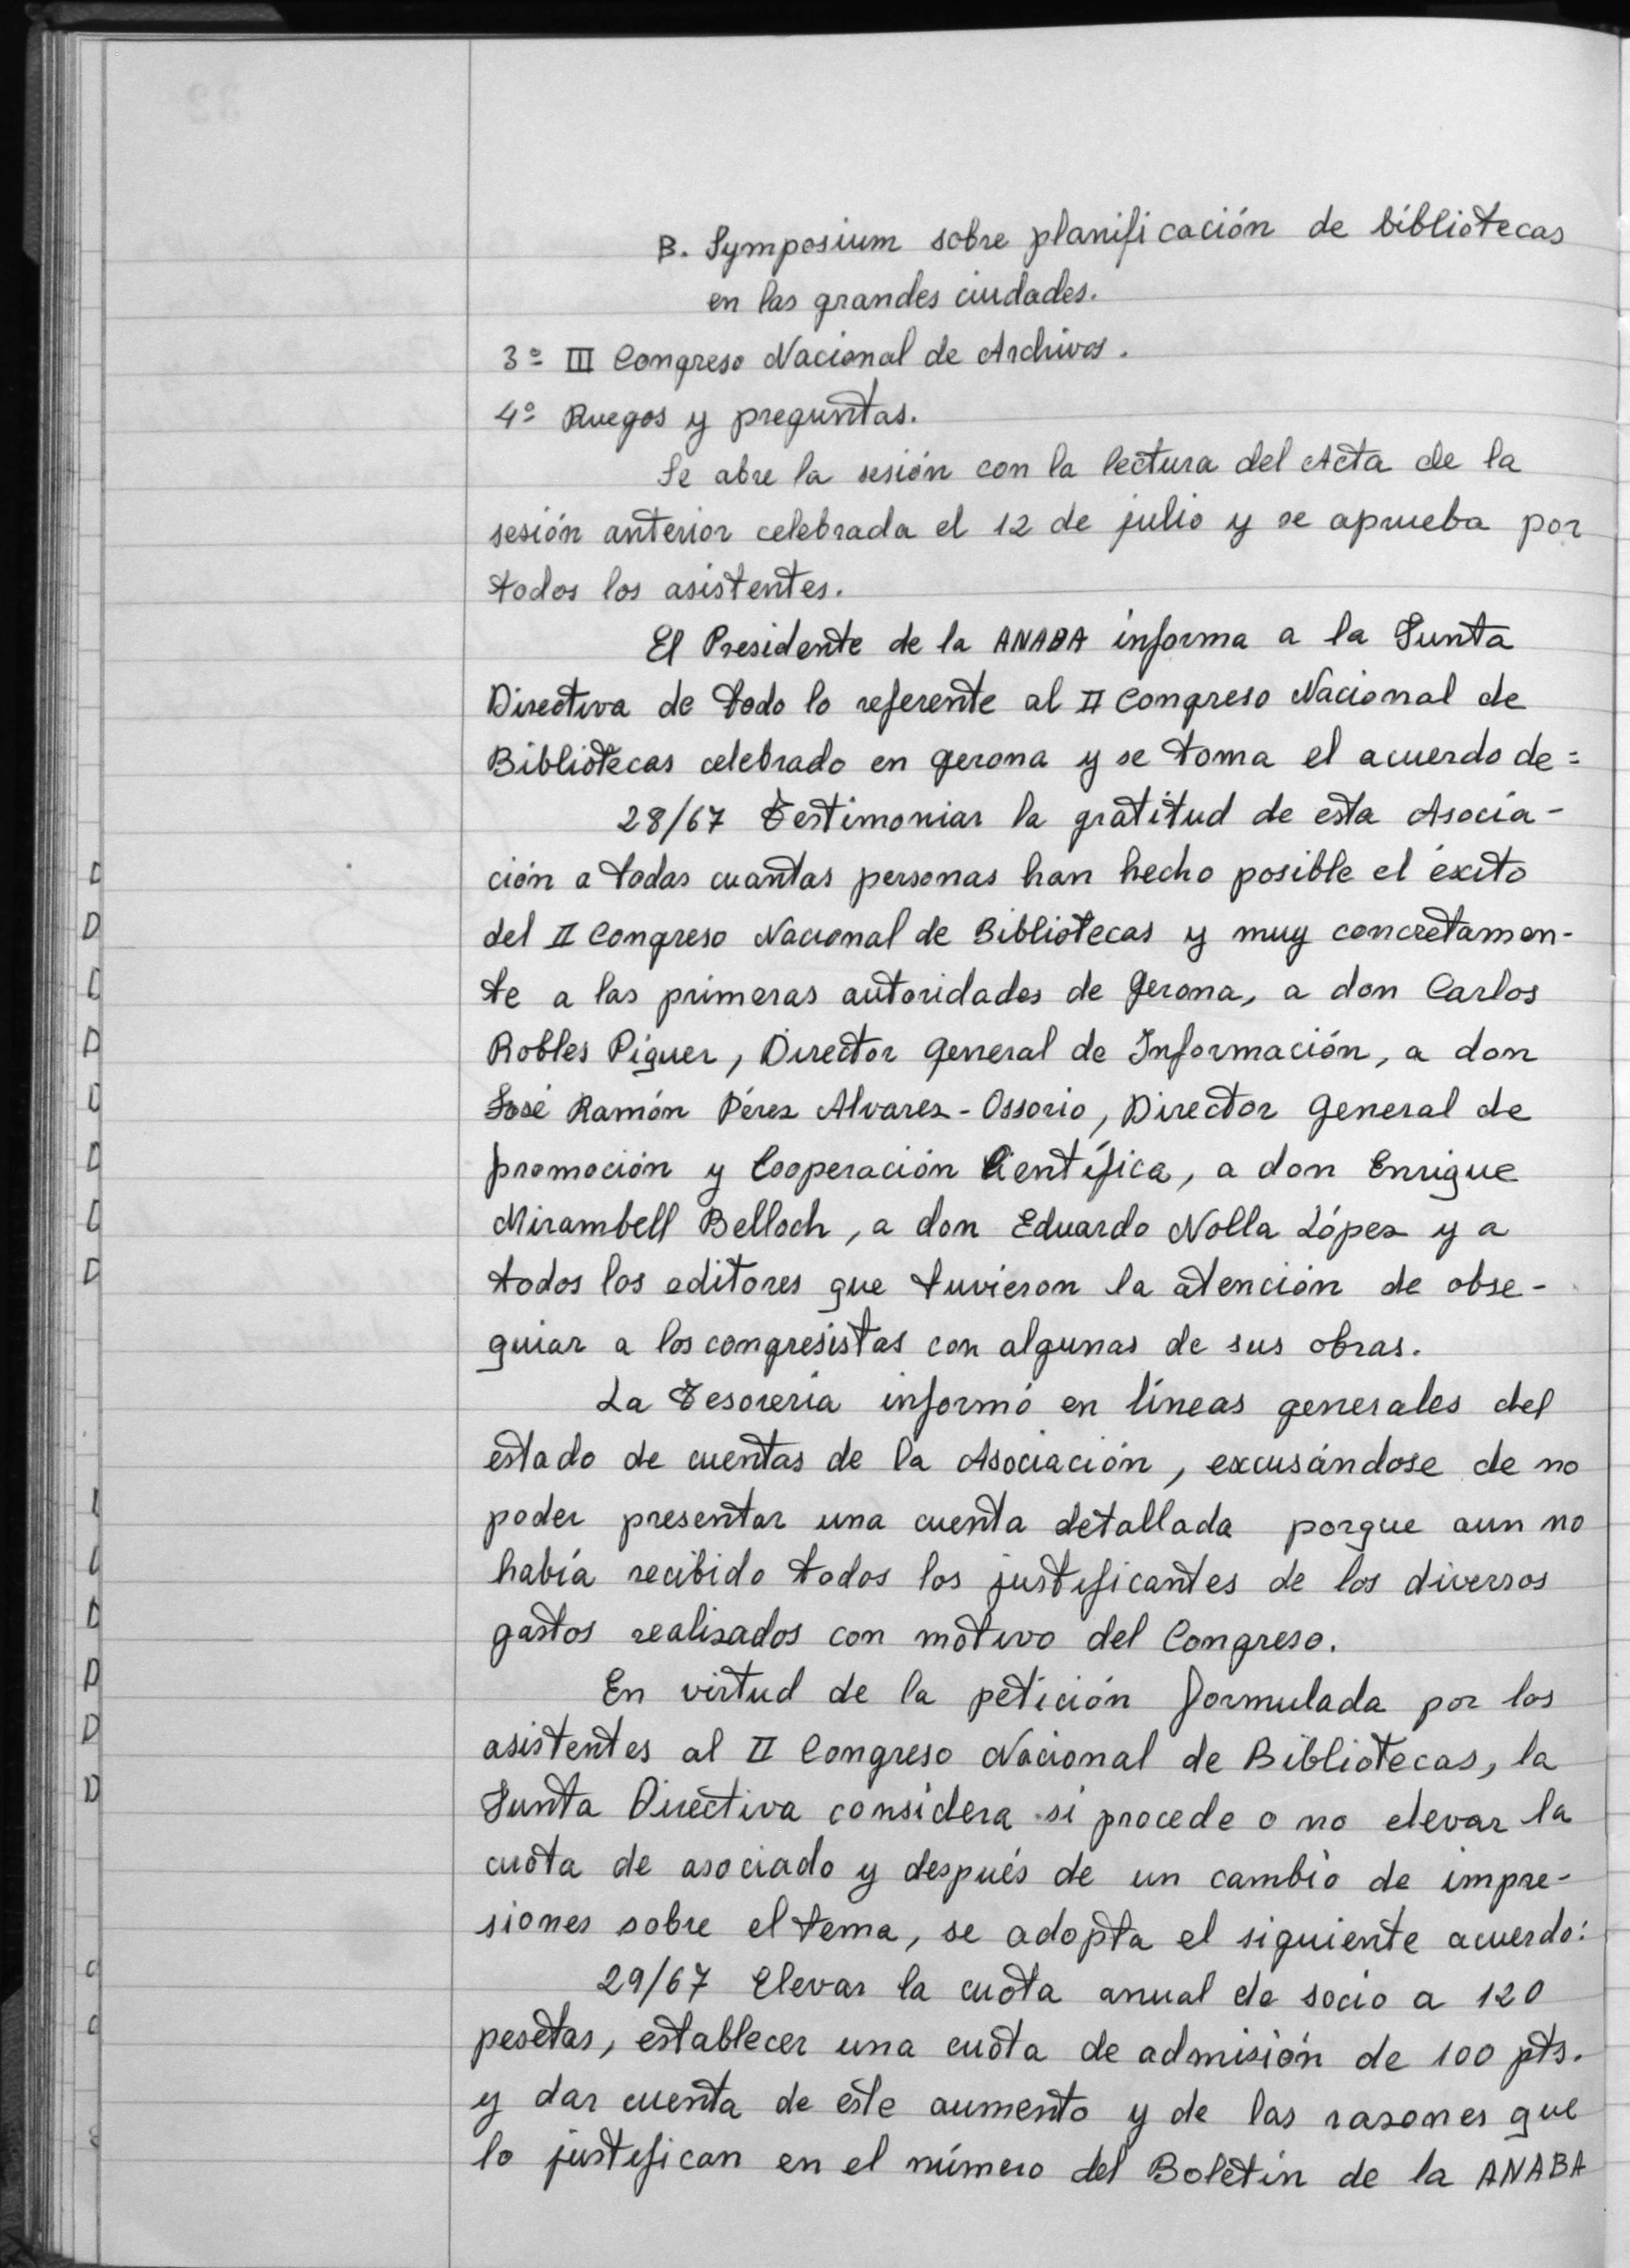 B. Symposium sobre planificación de bibliotecas
en las grandes ciudades.
3º III Congreso Nacional de Archivos.
4º Ruegos y preguntas.
Se abre la sesión con la lectura del Acta de la
sesión anterior celebrada el 12 de julio y se aprueba por
todos los asistentes.
El Presidente de la ANABA informa a la Junta
Directiva de todo lo referente al II Congreso Nacional de
Bibliotecas celebrado en Gerona y se toma el acuerdo de=
28/67 Testimoniar la gratitud de esta Asocia-
ción a todas cuantas personas han hecho posible el éxito
del II Congreso Nacional de Bibliotecas y muy concretamen-
te a las primeras autoridades de Gerona, a don Carlos
Robles Piquer, Director General de Información, a don
José Ramón Pérez Alvarez-Ossorio, Director General de
promoción y Cooperación Científica, a don Enrique
Mirambell Belloch, a don Eduardo Nolla López y a
todos los editores que tuvieron la atención de obse-
quiar a los congresistas con algunas de sus obras.
La Tesorería informó en líneas generales del
estado de cuentas de la Asociación, excusándose de no
poder presentar una cuenta detallada porque aun no
había recibido todos los justificantes de los diversos
gastos realizados con motivo del Congreso.
En virtud de la petición formulada por los
asistentes al II Congreso Nacional de Bibliotecas, la
Junta Directiva considera si procede o no elevar la
cuota de asociado y después de un cambio de impre-
siones sobre el tema, se adopta el siguiente acuerdo:
29/67 Elevar la cuota anual de socio a 120
pesetas, establecer una cuota de admisión de 100 pts.
y dar cuenta de este aumento y de las razones que
lo justifican en el número del Boletín de la ANABA